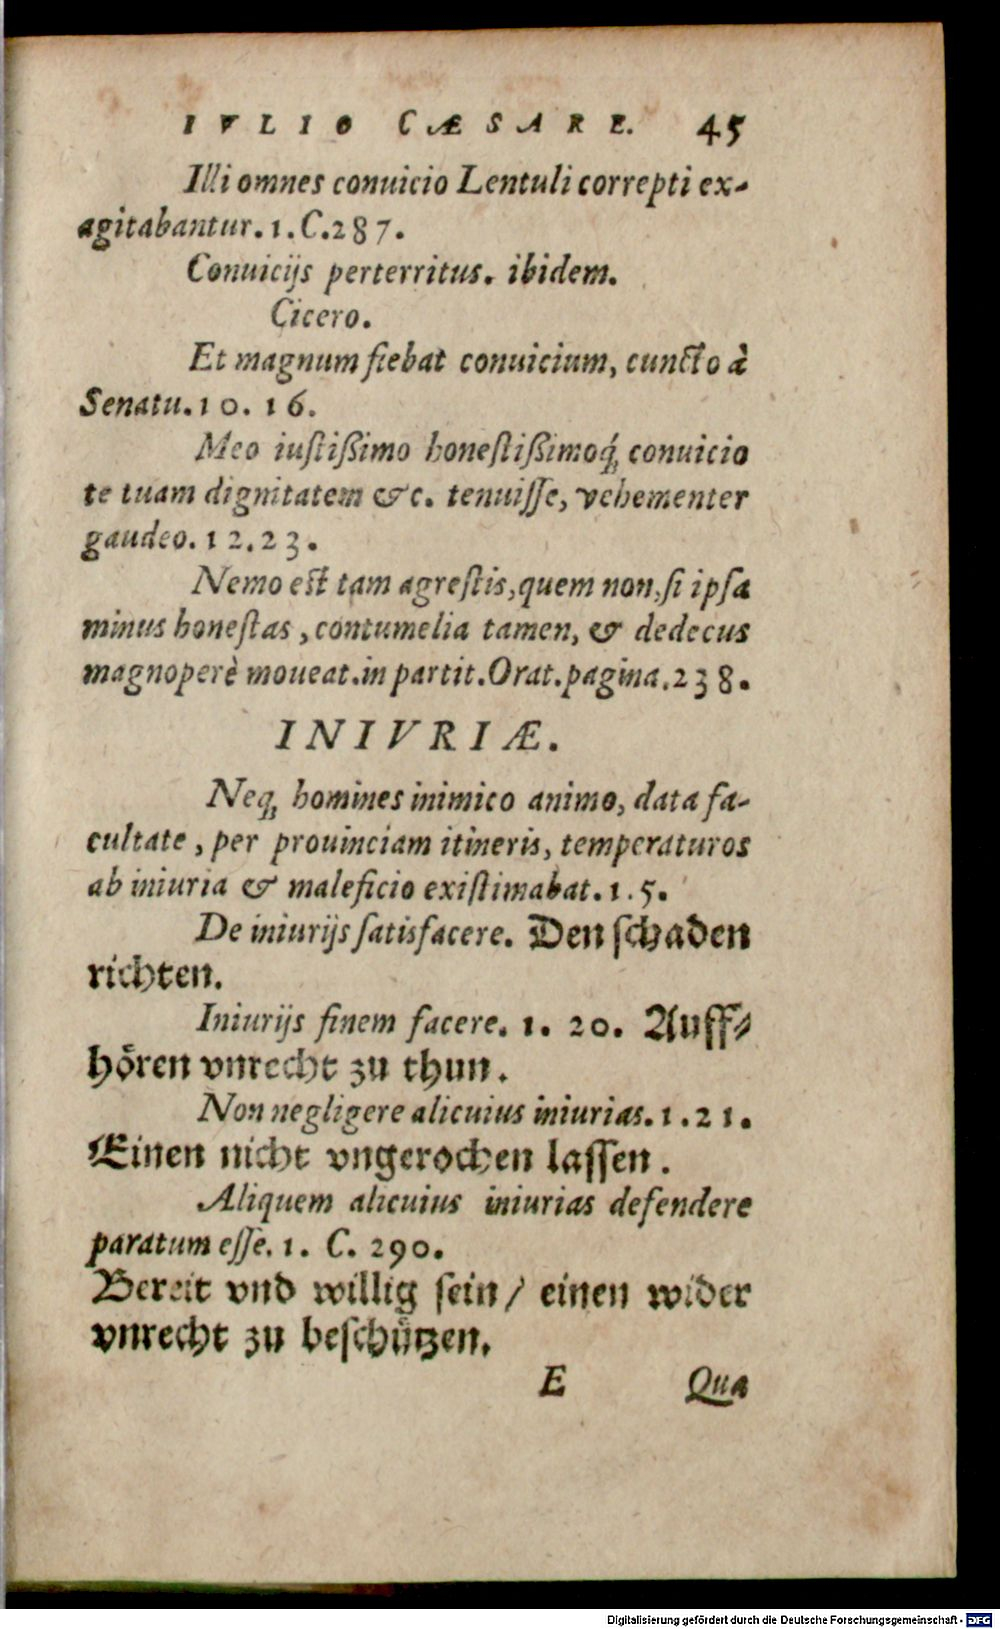 IVLIO CÆSARE. 45
Illi omnes conuicio Lentuli correpti ex-
agitabantur. 1. C. 287.
Conuicijs perterritus. ibidem.
Cicero.
Et magnum fiebat conuicium, cuncto à
Senatu. 10. 16.
Meo iustißimo honestißimoq́; conuicio
te tuam dignitatem &c. tenuiſſe, vehementer
gaudeo. 12. 23.
Nemo est tam agreſtis, quem non, ſi ipſa
minus honeſtas, contumelia tamen, & dedecus
magnoperè moueat. in partit. Orat. pagina. 238.
INIVRIÆ.
Neq; homines inimico animo, data fa-
cultate, per prouinciam itineris, temperaturos
ab iniuria & maleficio exiſtimabat. 1. 5.
De iniurijs ſatisfacere. Den ſchaden
richten.
Iniurijs finem facere. 1. 20. Auff-
hoͤren vnrecht zu thun.
Non negligere alicuius iniurias. 1. 21.
Einen nicht vngerochen laſſen.
Aliquem alicuius iniurias defendere
paratum eſſe. 1. C. 290.
Bereit vnd willig ſein / einen wider
vnrecht zu beſchuͤtzen.
E Qua
Digitalisierung gefördert durch die Deutsche Forschungsgemeinschaft - DFG